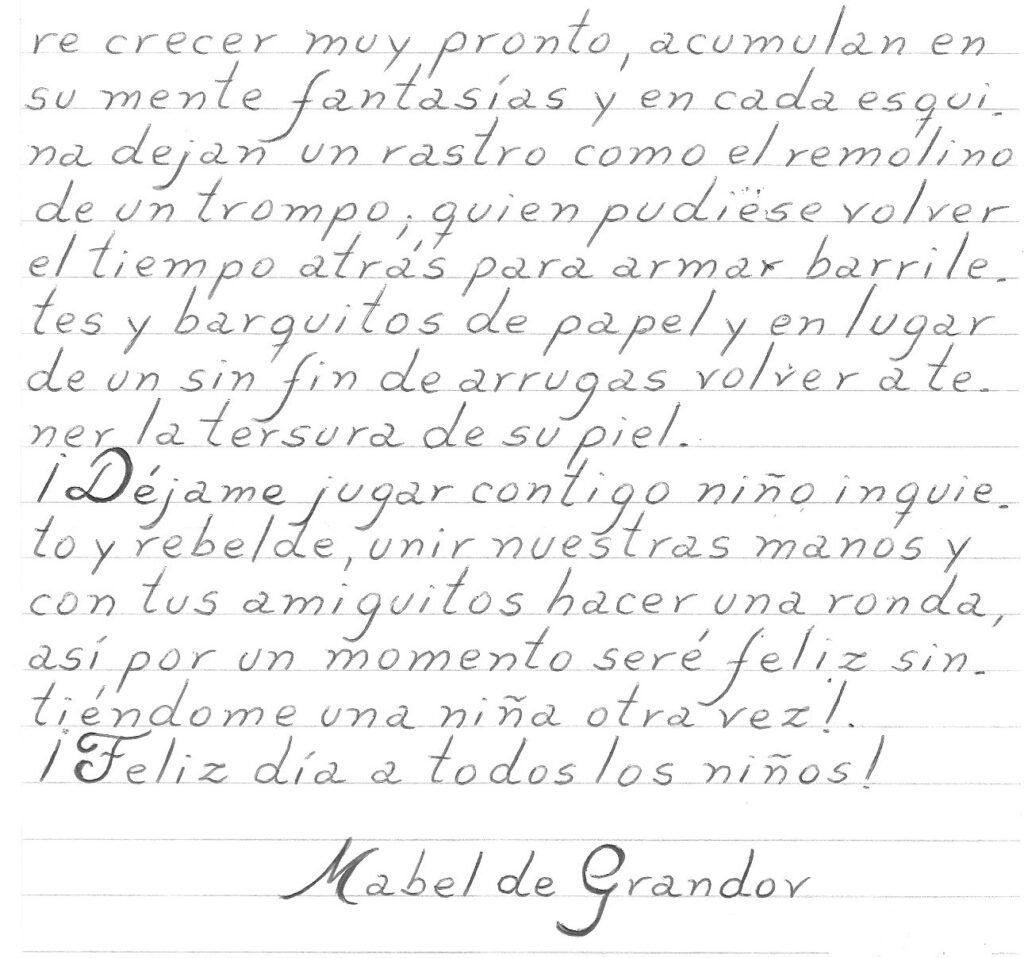 re crecer muy pronto, acumulan en
su mente fantasías y en cada esqui-
na dejan un rastro como el remolino
de un trompo; quien pudiese volver
el tiempo atrás para armar barrile-
tes y barquitos de papel y en lugar
de un sin fin de arrugas volver a te-
ner la tersura de su piel.
¡Déjame jugar contigo niño inquie-
to y rebelde, unir nuestras manos y
con tus amiguitos hacer una ronda,
así por un momento seré feliz sin-
tiéndome una niña otra vez!.
¡Feliz día a todos los niños!
Mabel de Grandov